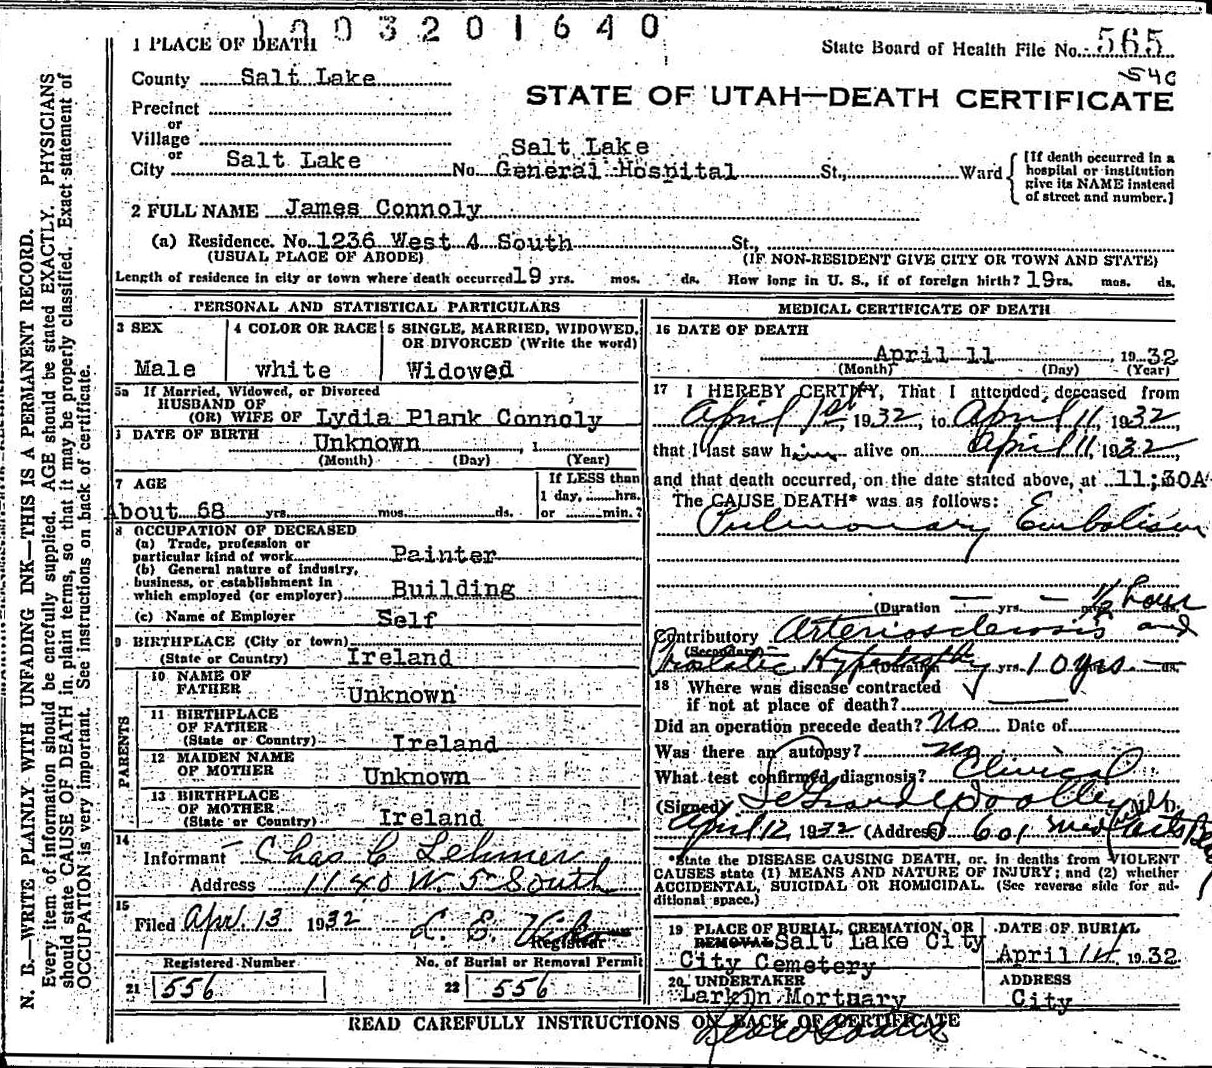 1003201640
1 PLACE OF DEATH
State Board of Health File No. 565
540
County Salt Lake
STATE OF UTAH—DEATH CERTIFICATE
Precinct
or
Village
or
City Salt Lake No. Salt Lake General Hospital St., Ward
[If death occurred in a
hospital or institution
give its NAME instead
of street and number.]
2 FULL NAME James Connoly
(a) Residence. No. 1236 West 4 South St.,
(USUAL PLACE OF ABODE) (IF NON-RESIDENT GIVE CITY OR TOWN AND STATE)
Length of residence in city or town where death occurred 19 yrs. mos. ds. How long in U. S., if of foreign birth? 19rs. mos. ds.
PERSONAL AND STATISTICAL PARTICULARS
3 SEX
Male
4 COLOR OR RACE
white
5 SINGLE, MARRIED, WIDOWED,
OR DIVORCED (Write the word)
Widowed
5a If Married, Widowed, or Divorced
HUSBAND OF
(OR) WIFE OF Lydia Plank Connoly
DATE OF BIRTH Unknown , 1
(Month) (Day) (Year)
7 AGE
About 68 yrs. mos. ds.
If LESS than
1 day, hrs.
or min.?
8 OCCUPATION OF DECEASED
(a) Trade, profession or
particular kind of work Painter
(b) General nature of industry,
business, or establishment in
which employed (or employer) Building
(c) Name of Employer Self
9 BIRTHPLACE (City or town)
(State or Country) Ireland
PARENTS
10 NAME OF
FATHER Unknown
11 BIRTHPLACE
OF FATHER
(State or Country) Ireland
12 MAIDEN NAME
OF MOTHER Unknown
13 BIRTHPLACE
OF MOTHER
(State or Country) Ireland
14
Informant Chas C Lehmer
Address 1140 W. 5 South
15
Filed Apr. 13 1932 L. E.
Registrar
Registered Number
21 556
No. of Burial or Removal Permit
22 556
MEDICAL CERTIFICATE OF DEATH
16 DATE OF DEATH
April 11 , 1932
(Month) (Day) (Year)
17 I HEREBY CERTIFY, That I attended deceased from
April 1st, 1932, to April 11, 1932,
that I last saw him alive on April 11, 1932,
and that death occurred, on the date stated above, at 11:30A
The CAUSE DEATH* was as follows:
Pulmonary Embolism
(Duration — yrs. — mos. 1/2 hour ds.
Contributory Arteriosclerosis and
(Secondary)
Prostatic Hypertrophy (Duration yrs. 10 yrs — ds.
18 Where was disease contracted
if not at place of death?
Did an operation precede death? No Date of
Was there an autopsy? no
What test confirmed diagnosis? Clinical
(Signed) LeGrand Woolley M. D.
April 12 1932 (Address) 601 Med Arts Bldg
*State the DISEASE CAUSING DEATH, or, in deaths from VIOLENT
CAUSES state (1) MEANS AND NATURE OF INJURY; and (2) whether
ACCIDENTAL, SUICIDAL OR HOMICIDAL. (See reverse side for ad-
ditional space.)
19 PLACE OF BURIAL, CREMATION, OR
REMOVAL Salt Lake City
City Cemetery
DATE OF BURIAL
April 14 1932
20 UNDERTAKER
Larkin Mortuary
ADDRESS
City
READ CAREFULLY INSTRUCTIONS ON BACK OF CERTIFICATE
N. B.—WRITE PLAINLY WITH UNFADING INK—THIS IS A PERMANENT RECORD.
Every item of information should be carefully supplied. AGE should be stated EXACTLY. PHYSICIANS
should state CAUSE OF DEATH in plain terms, so that it may be properly classified. Exact statement of
OCCUPATION is very important. See instructions on back of certificate.